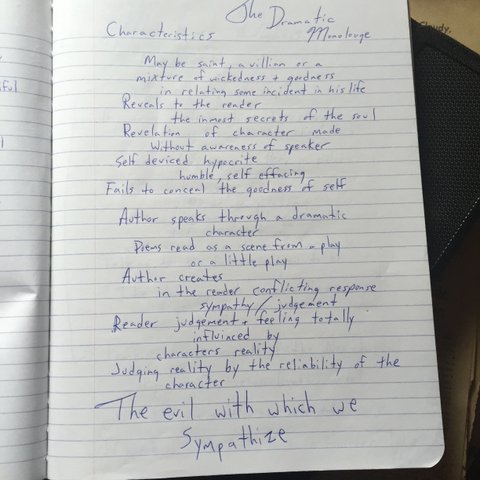 The Dramatic
Characteristics Monolouge
May be saint, a villian or a
mixture of wickedness + goodness
in relating some incident in his life
Reveals to the reader
the inmost secrets of the soul
Revelation of character made
without awareness of speaker
Self deviced hypocrite
humble, self effacing
Fails to conceal the goodness of self
Author speaks through a dramatic
character
Poems read as a scene from a play
or a little play
Author creates
in the reader conflicting response
sympathy/judgement
Reader judgement + feeling totally
influinced by
characters reality
Judging reality by the reliability of the
character
The evil with which we
Sympathize